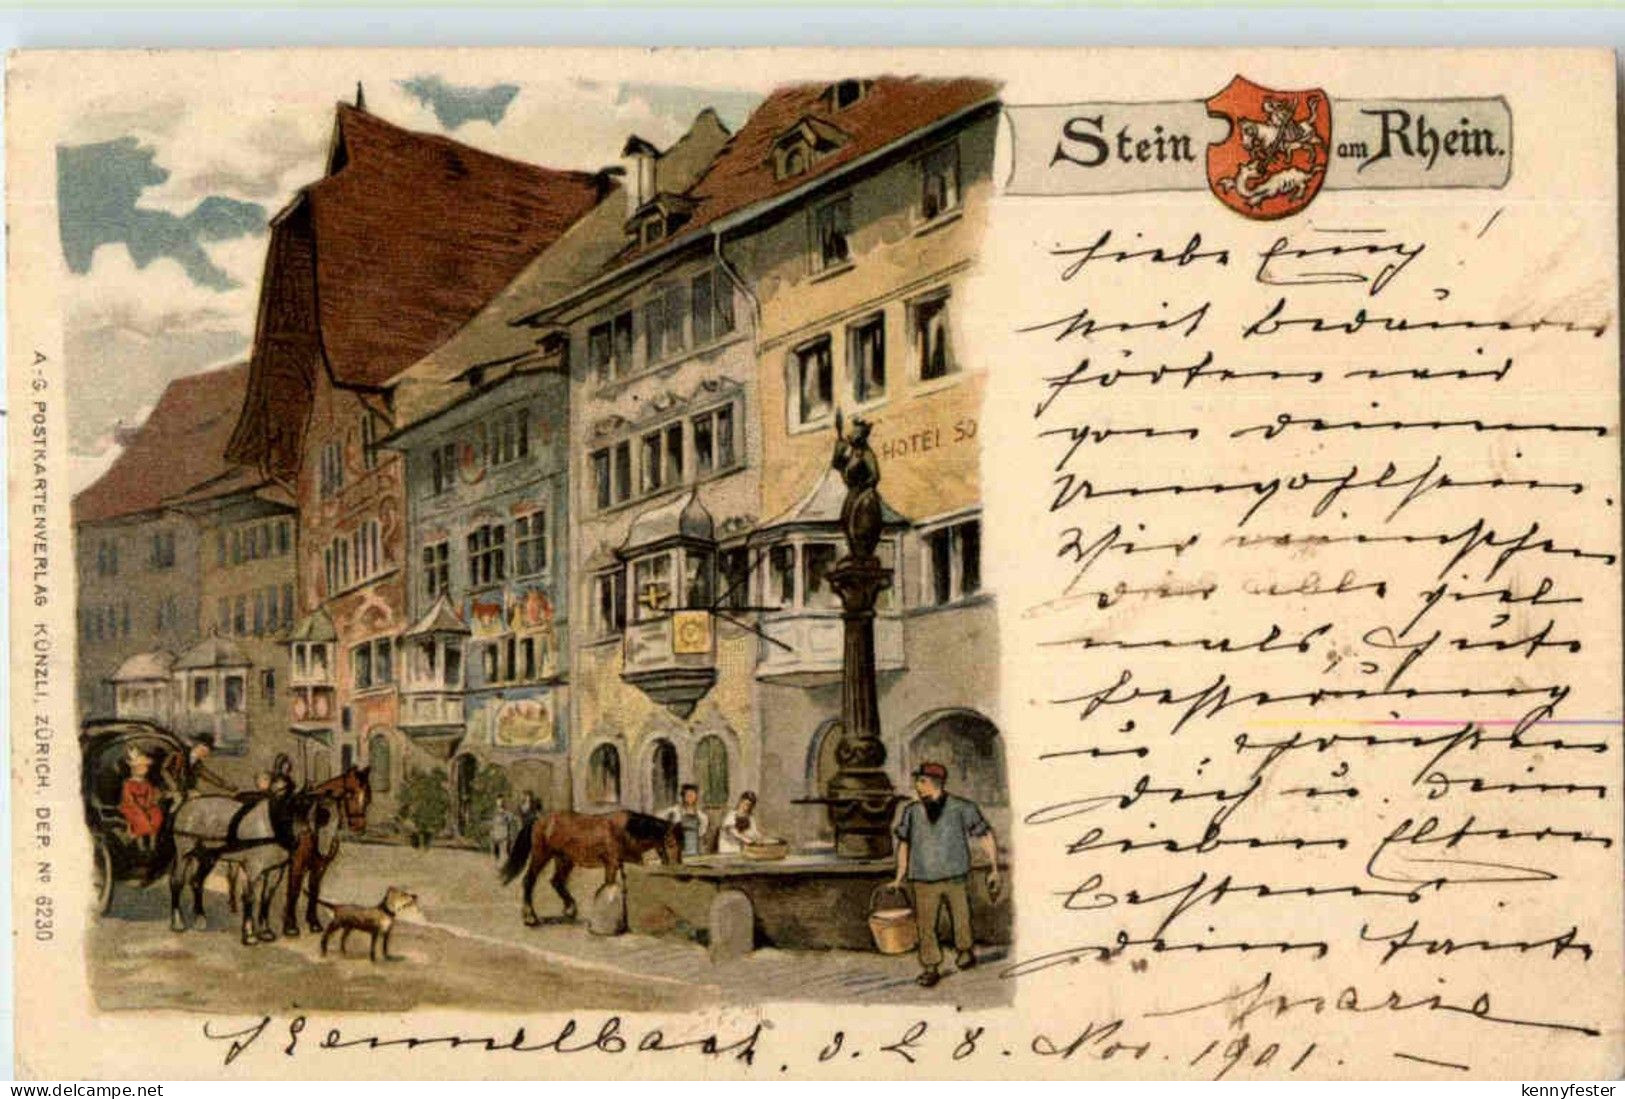 Stein am Rhein.
A.-G. POSTKARTENVERLAG KÜNZLI, ZÜRICH, DEP. No 6230
HOTEL SO
Liebe Emmy!
Mit Bedauern
hörten wir
von deinem
Unwohlsein.
Wir wünschen
dir alle viel
mals gute
Besserung
u. grüssen
Dich u. deine
lieben Eltern
bestens
deine Tante
Marie
d. 28. Nov. 1901.
kennyfester